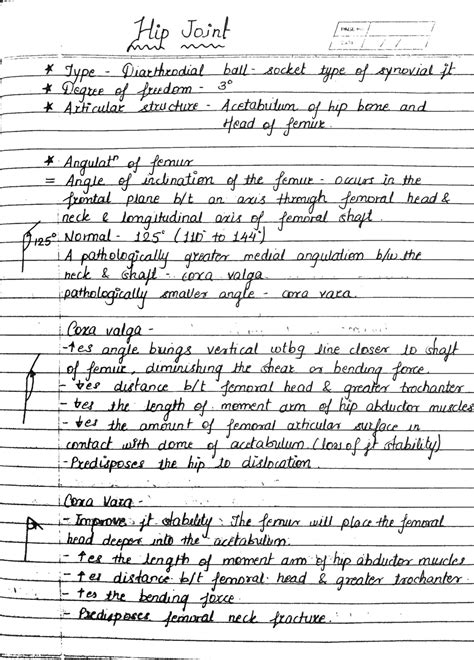 Hip Joint
PAGE NO.
DATE
* Type - Diarthrodial ball - socket type of synovial jt
* Degree of freedom - 3°
* Articular structure - Acetabulum of hip bone and
Head of femur.
* Angulatⁿ of femur
= Angle of inclination of the femur - occurs in the
frontal plane b/t an axis through femoral head &
neck & longitudinal axis of femoral shaft.
125° Normal - 125° (110° to 144°)
A pathologically greater medial angulation b/w the
neck & shaft - coxa valga.
pathologically smaller angle - coxa vara.
Coxa valga -
-↑es angle brings vertical wtbg line closer to shaft
of femur, diminishing the shear or bending force.
- ↓es distance b/t femoral head & greater trochanter
- ↓es the length of moment arm of hip abductor muscles
- ↓es the amount of femoral articular surface in
contact with dome of acetabulum (loss of jt stability)
-Predisposes the hip to dislocation.
Coxa Vara -
- Improve jt stability : The femur will place the femoral
head deeper into the acetabulum.
- ↑es the length of moment arm of hip abductor muscles
- ↑es distance b/t femoral head & greater trochanter
- ↑es the bending force
- Predisposes femoral neck fracture.